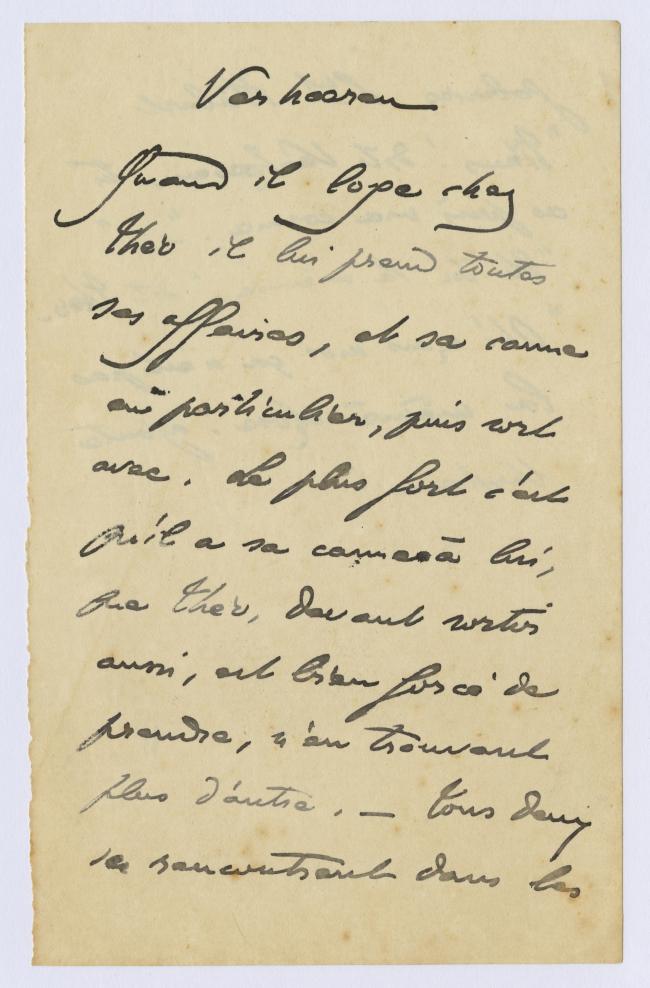 Verhaeren
Quand il loge chez
Théo il lui prend toutes
ses affaires, et sa canne
en particulier, puis sort
avec. Le plus fort c'est
qu'il a sa canne à lui,
que Théo, devant sortir
aussi, est bien forcé de
prendre, n'en trouvant
plus d'autre. — Tous deux
se rencontrent dans les